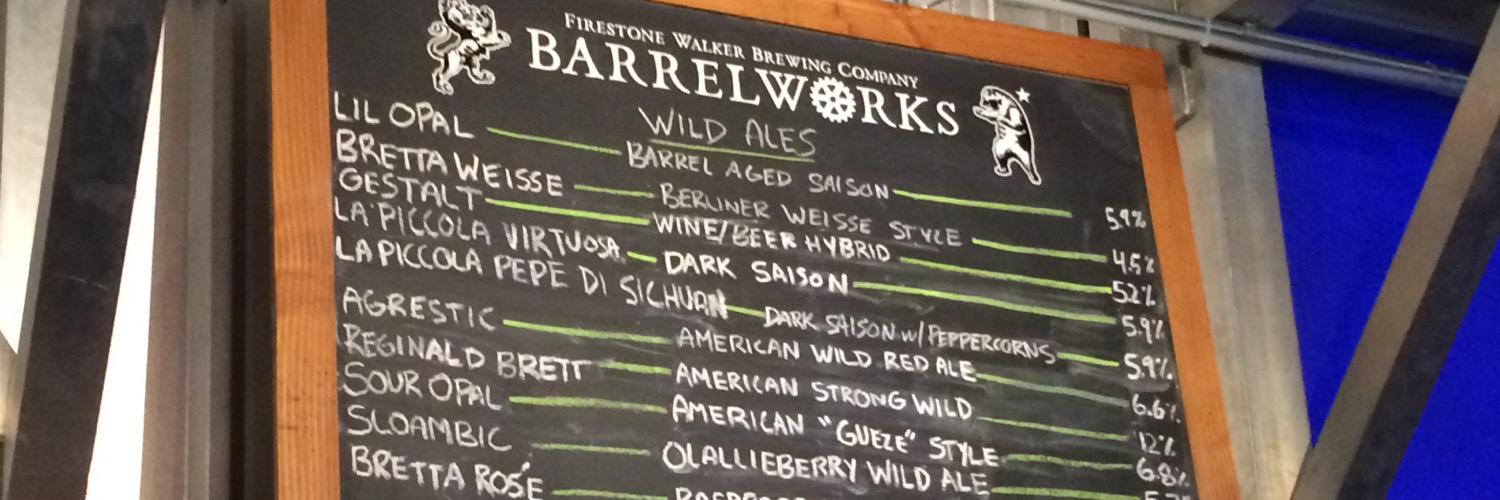 FIRESTONE WALKER BREWING COMPANY
BARRELWORKS
WILD ALES
LIL OPAL BARREL AGED SAISON 5.9%
BRETTA WEISSE BERLINER WEISSE STYLE 4.5%
GESTALT WINE/BEER HYBRID 52%
LA PICCOLA VIRTUOSA DARK SAISON 5.9%
LA PICCOLA PEPE DI SICHUAN DARK SAISON w/ PEPPERCORNS 5.9%
AGRESTIC AMERICAN WILD RED ALE 6.6%
REGINALD BRETT AMERICAN STRONG WILD 12%
SOUR OPAL AMERICAN "GUEZE" STYLE 6.8%
SLOAMBIC OLALLIEBERRY WILD ALE
BRETTA ROSÉ